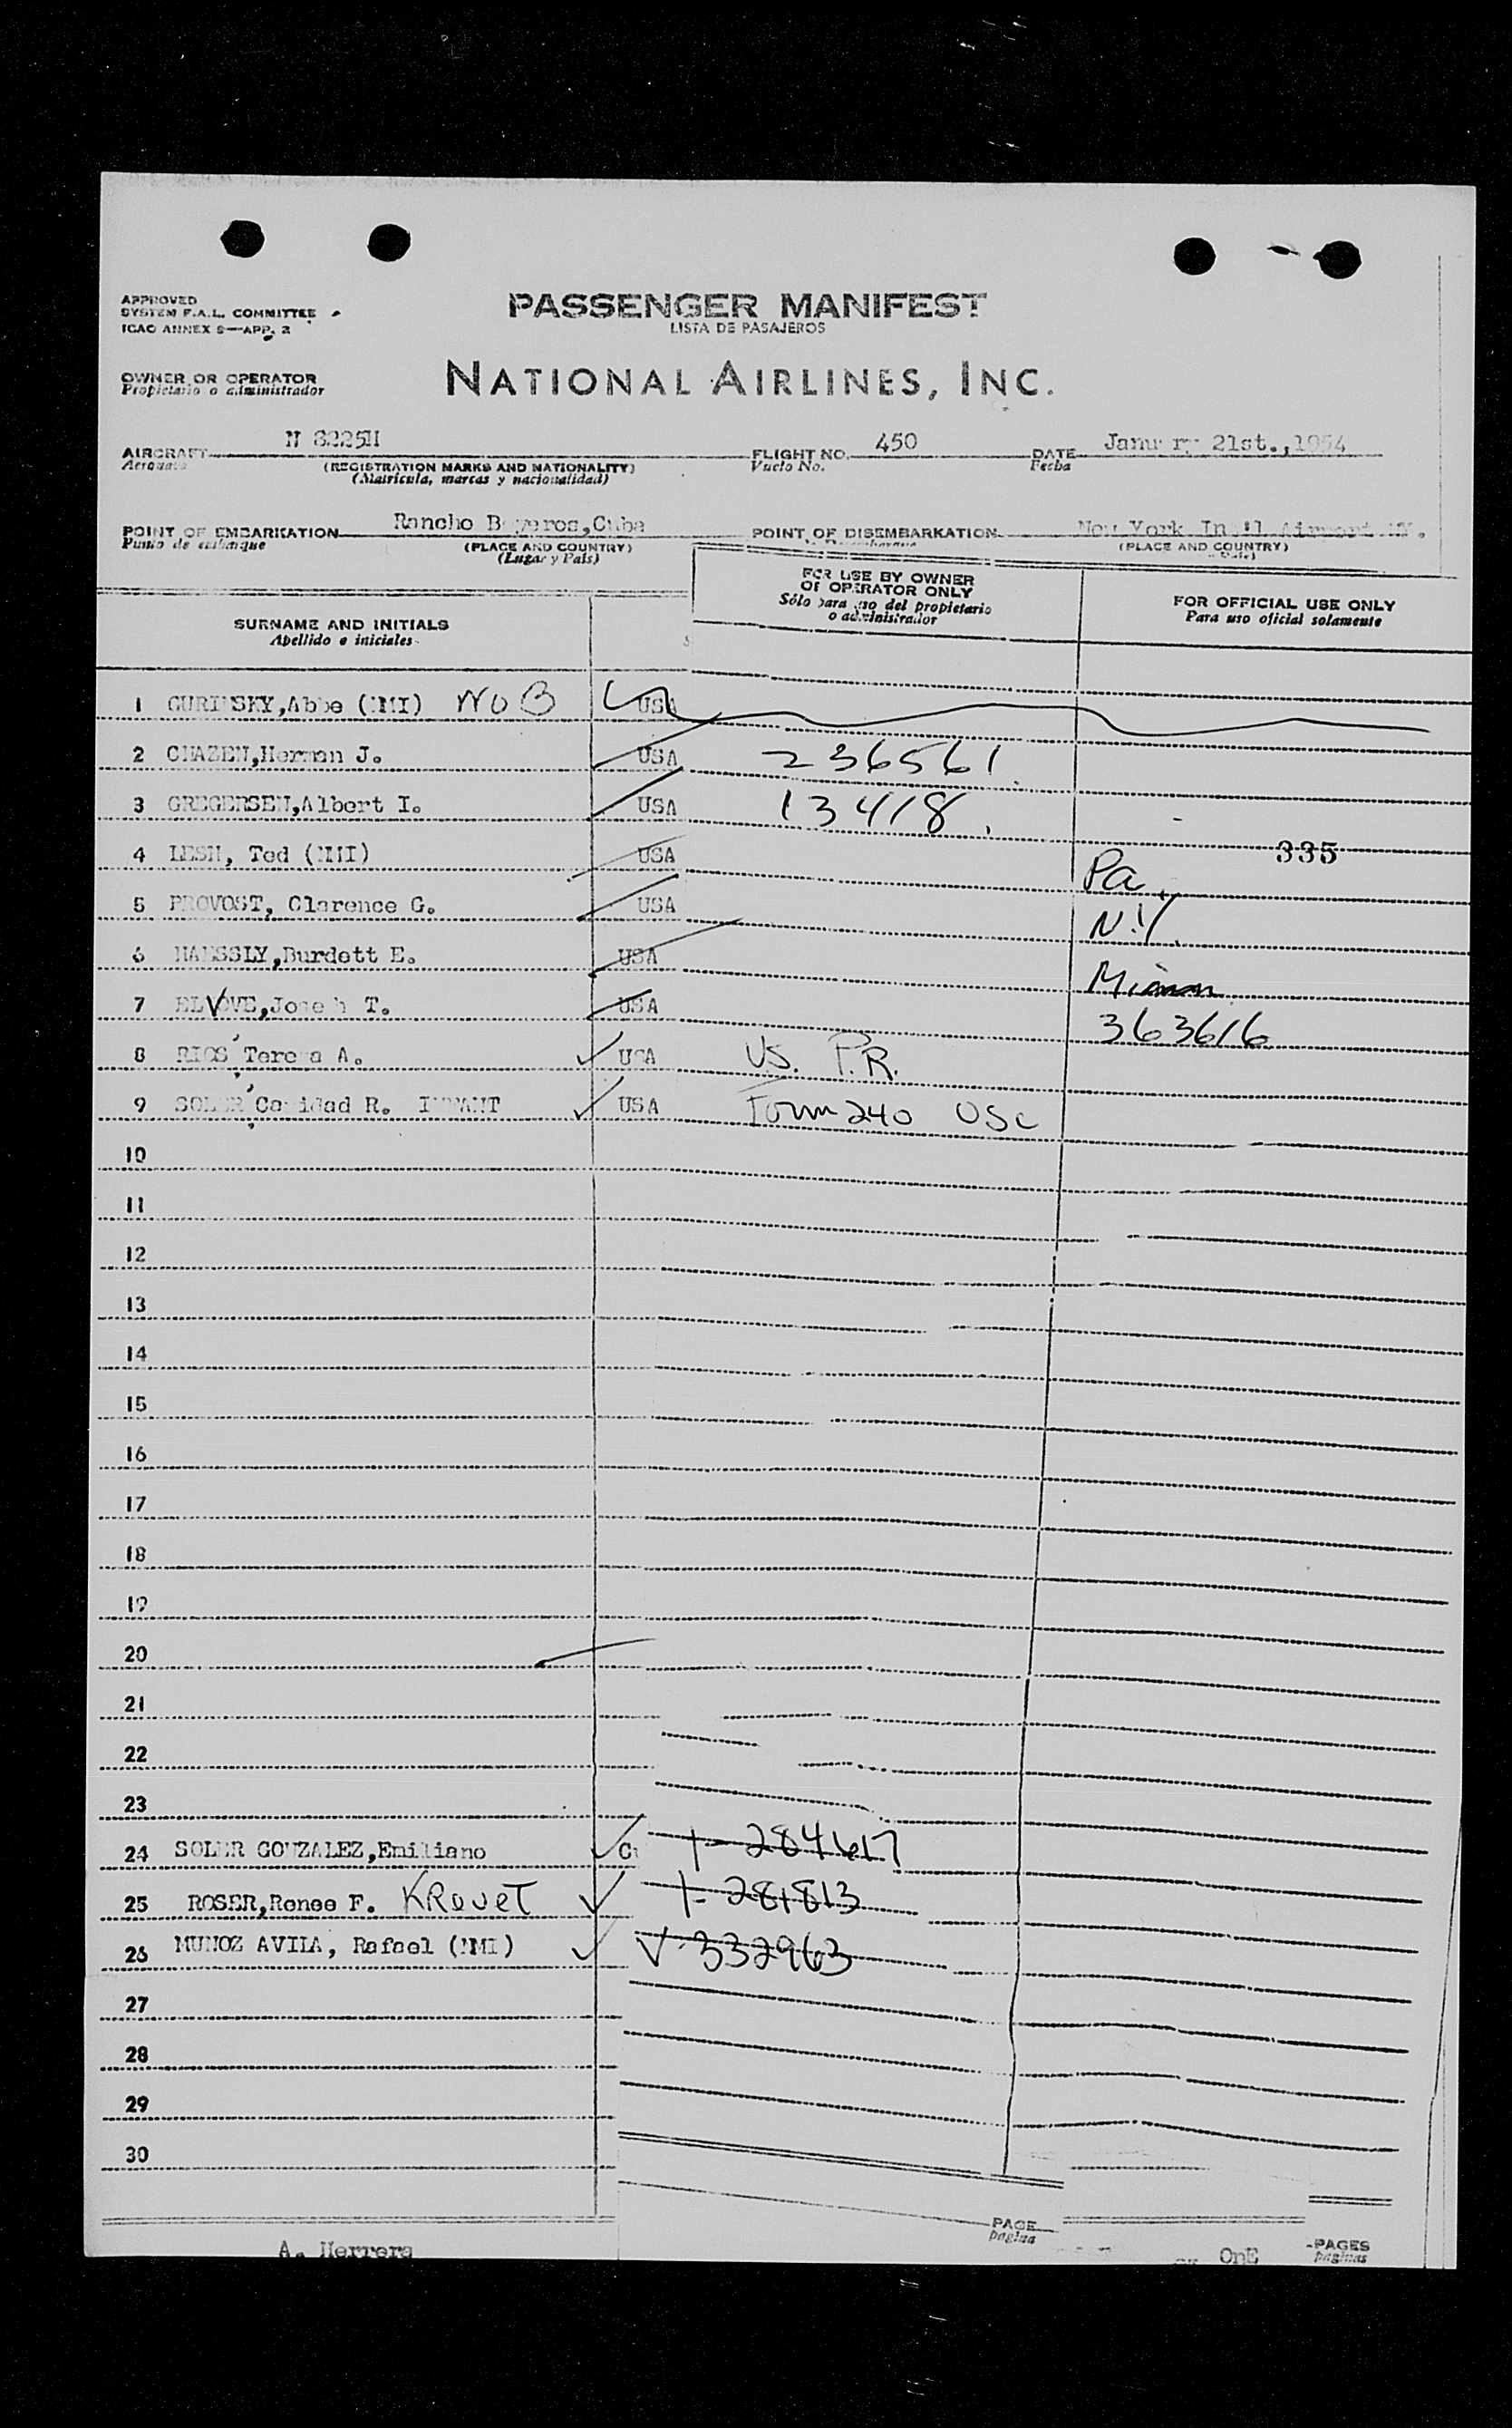 APPROVED
SYSTEM F.A.L. COMMITTEE
ICAO ANNEX 9—APP. 2
PASSENGER MANIFEST
LISTA DE PASAJEROS
OWNER OR OPERATOR
Propietario o administrador
NATIONAL AIRLINES, INC.
AIRCRAFT N 8225H FLIGHT NO. 450 DATE January 21st.,1954
Aeronave (REGISTRATION MARKS AND NATIONALITY) Vuelo No. Fecha
(Matricula, marcas y nacionalidad)
POINT OF EMBARKATION Rancho Boyeros,Cuba POINT OF DISEMBARKATION New York Int'l Airport NY.
Punto de embarque (PLACE AND COUNTRY) (PLACE AND COUNTRY)
(Lugar y Pais)
FOR USE BY OWNER
OR OPERATOR ONLY
Sólo para uso del propietario
o administrador
FOR OFFICIAL USE ONLY
Para uso oficial solamente
SURNAME AND INITIALS
Apellido e iniciales
1 GURINSKY,Abbe (NMI) NOB USA
2 CHAZEN,Herman J. USA 236561
3 GREGERSEN,Albert I. USA 13418
335
4 LESH, Ted (NMI) USA Pa.
5 PROVOST, Clarence G. USA N.Y.
6 HAESSLY,Burdett E. USA
7 ELVOVE,Joseph T. USA 363616
8 RIOS, Teresa A. USA US. P.R.
9 SOLER, Caridad R. INFANT USA Form 240 USC
10
11
12
13
14
15
16
17
18
19
20
21
22
23
24 SOLER GONZALEZ,Emiliano 1-284617
25 ROSER,Renee F. KROUET 1-281813
26 MUNOZ AVILA, Rafael (NMI) V-332963
27
28
29
30
PAGE
pagina
A. Herrera OnE PAGES
paginas